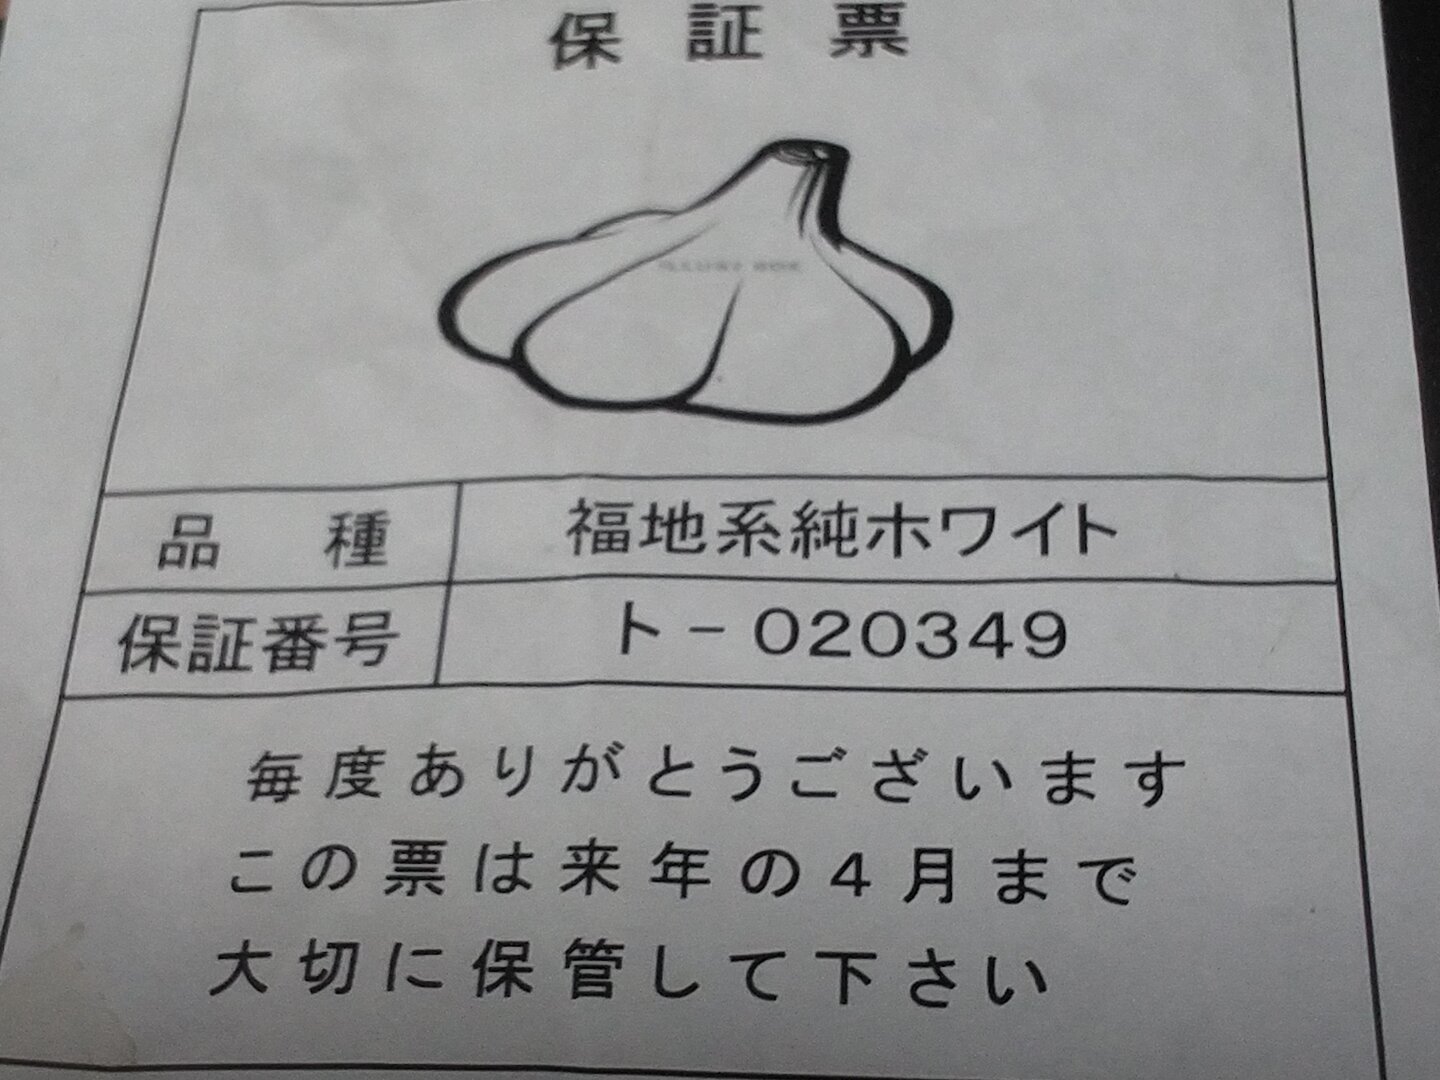 保証票
品種 福地系純ホワイト
保証番号 ト－020349
毎度ありがとうございます
この票は来年の4月まで
大切に保管して下さい